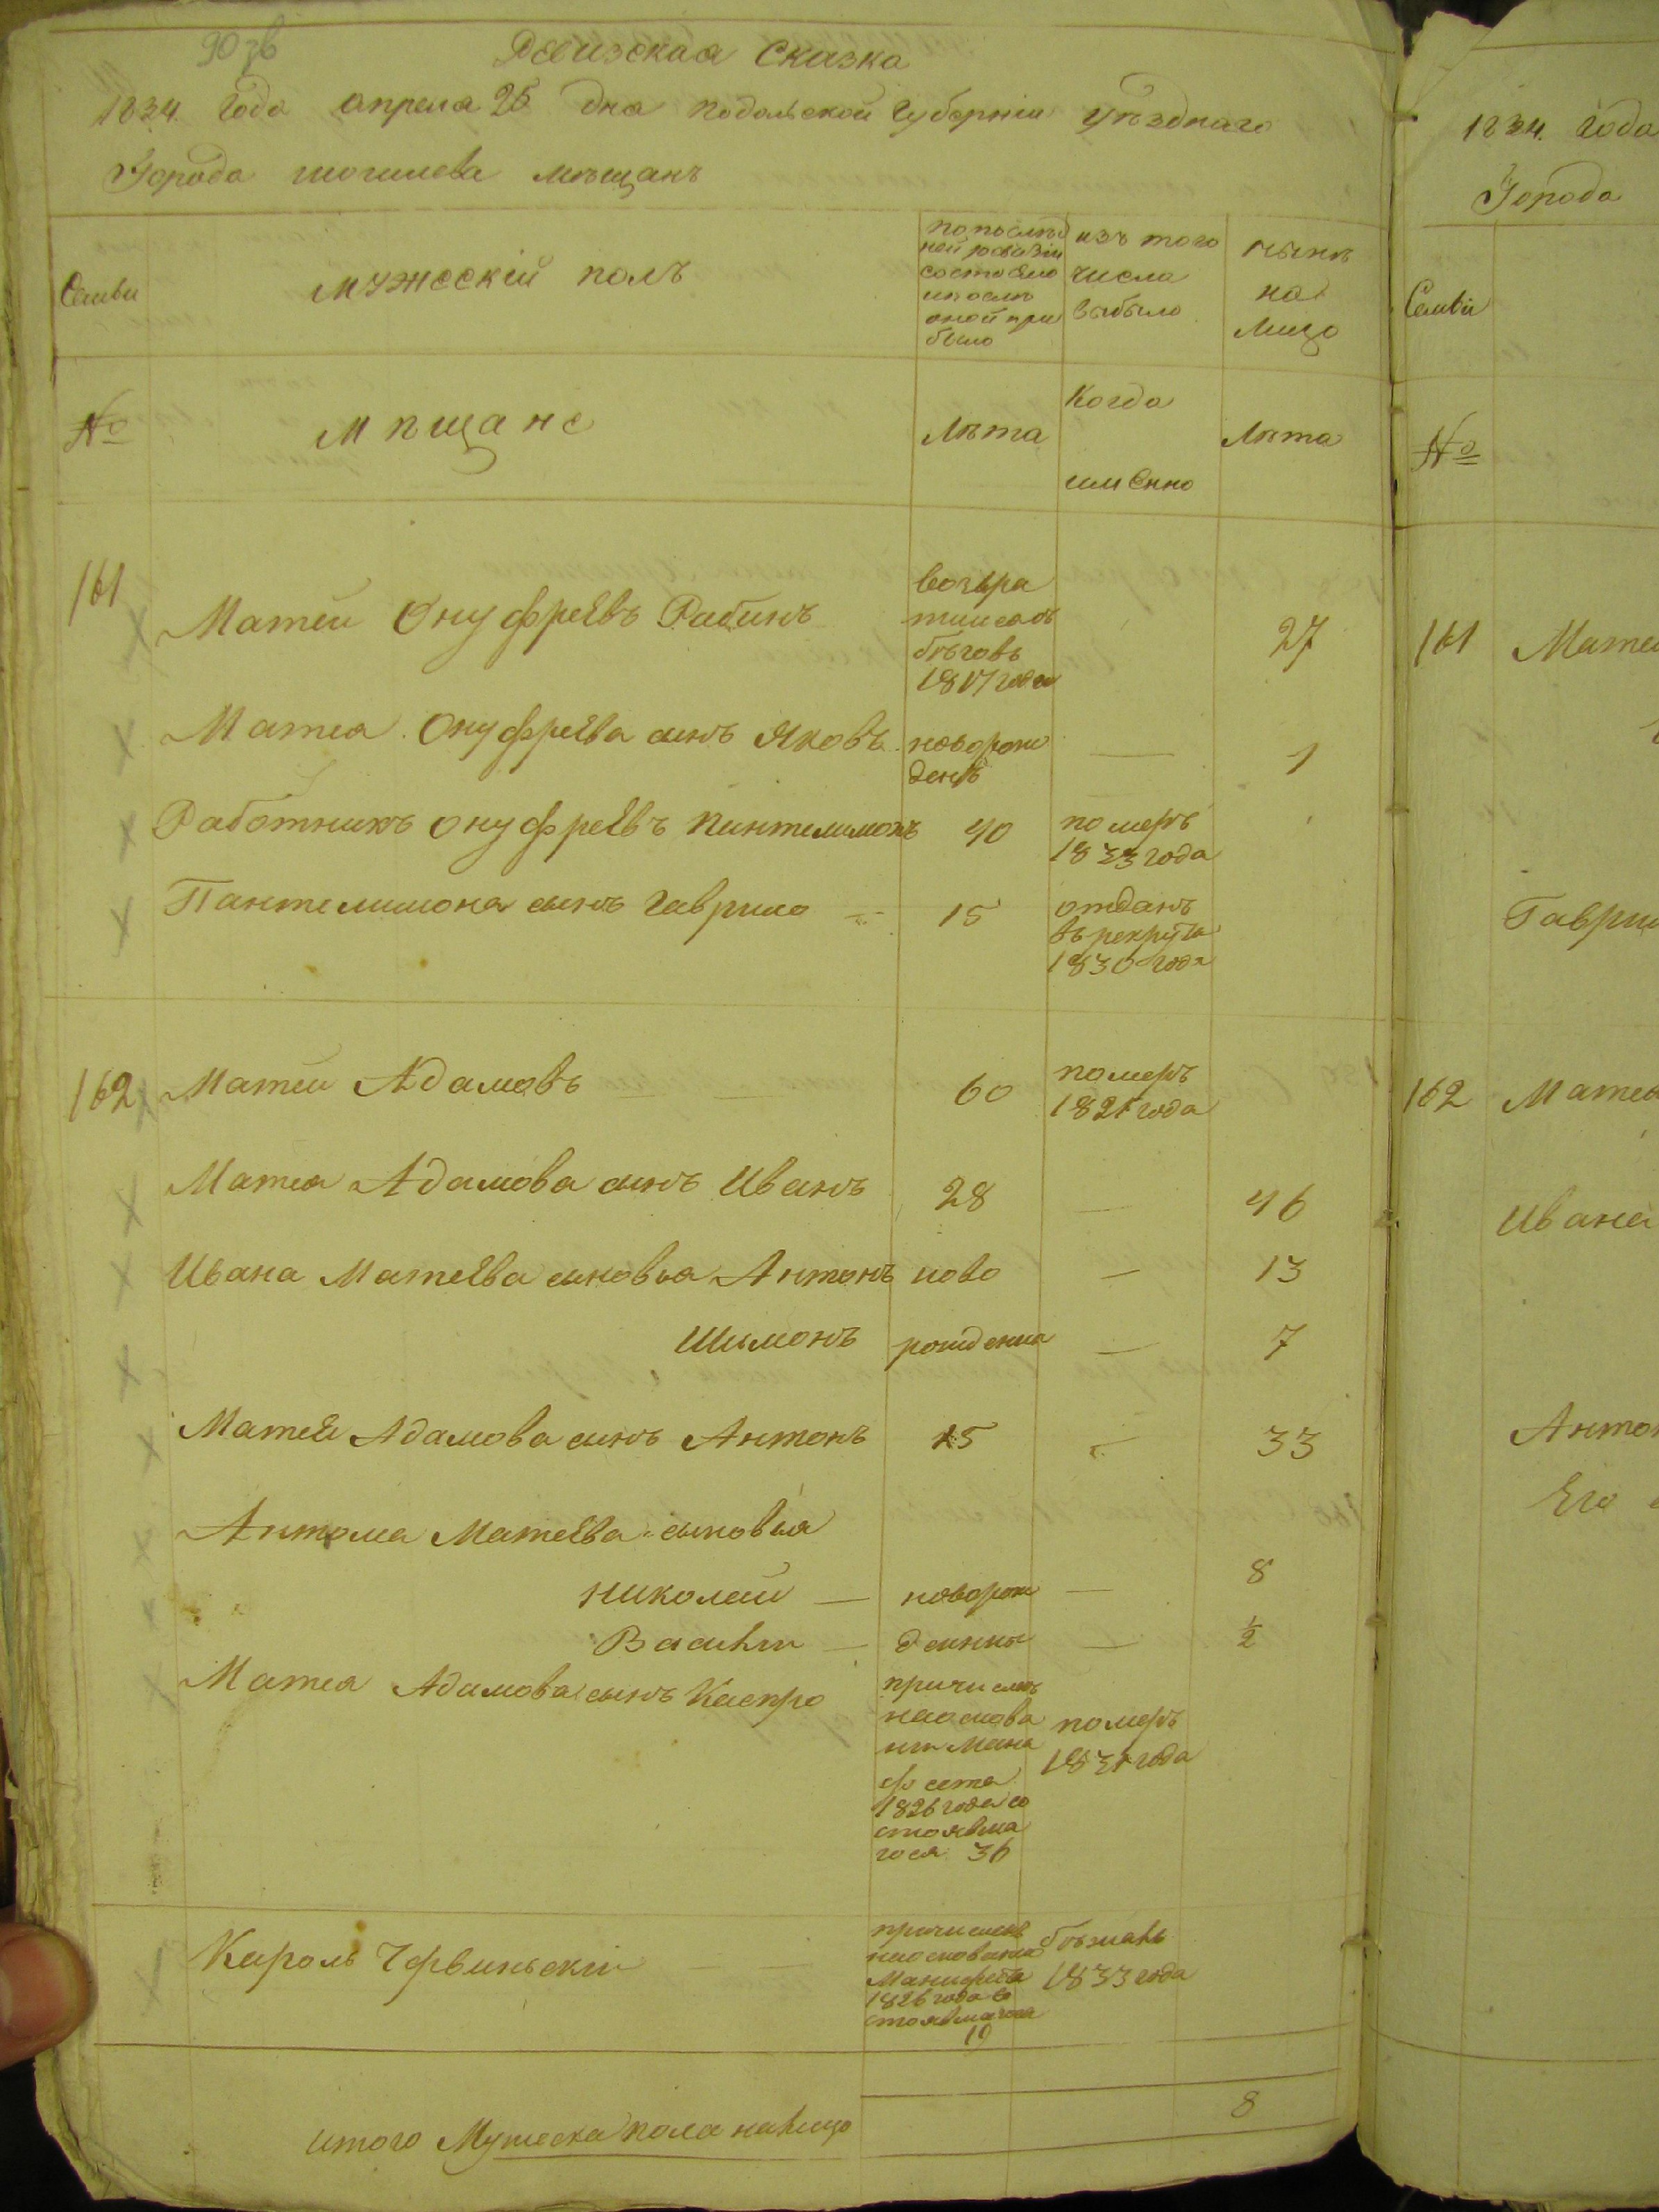 90 зв
Ревизская Сказка
1834 Года апреля 25 дня Подольской Губерніи уѣзднаго
Города могилева мѣщанъ
Семьи
мужескій полъ
по послѣд
ней ревизіи
состояло
и послѣ
оной при
было
изъ того
числа
выбыло
нынѣ
на
лицо
№
мѣщане
Лѣта
Когда
именно
Лѣта
161
Матей Онуфреевъ Рабинъ
возвра
тился съ
бѣговъ
1817 года
27
Матея Онуфреева сынъ Яковъ
новорож
денъ
—
1
Работникъ Онуфреевъ Пантелимонъ
40
померъ
1833 года
Пантелимона сынъ Гаврило
15
отданъ
въ рекруты
1830 года
162
Матей Адамовъ
60
померъ
1821 года
Матея Адамова сынъ Иванъ
28
—
46
Ивана Матеева сыновья Антонъ
ново
—
13
Шимонъ
рождения
—
7
Матея Адамова сынъ Антонъ
15
—
33
Антона Матеева сыновья
Николай
новорож
—
8
Василій
денны
—
1/2
Матея Адамова сынъ Каспро
причисленъ
на основа
ніи Мани
феста
1826 года со
стоявша
гося 36
померъ
1831 года
Кароль Червинскій
причисленъ
на основании
Манифеста
1826 года со
стоявшагося
19
бѣжалъ
1833 года
итого Мужеска пола налицо
8
1834. Года
Города
Семьи
№
161
Матея
Гаврил
162
Матея
Ивана
Антон
Его